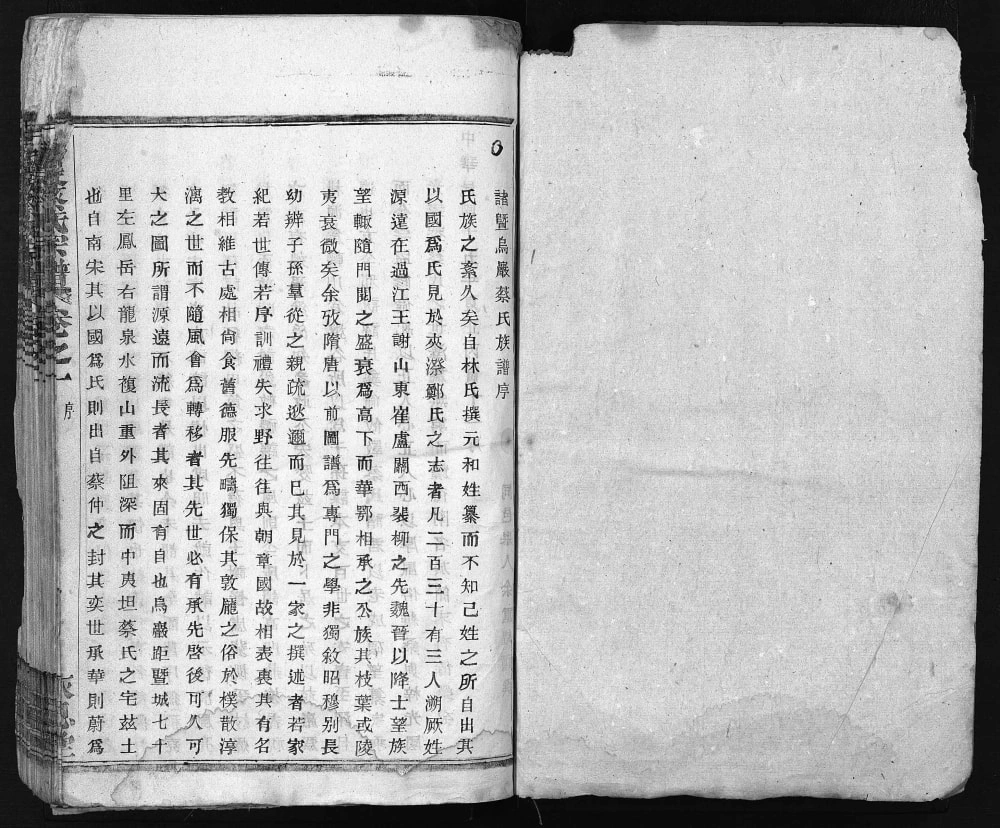 諸暨烏巖蔡氏族譜序
氏族之紊久矣自林氏撰元和姓纂而不知己姓之所自出其
以國爲氏見於夾漈鄭氏之志者凡二百三十有三人溯厥姓
源遠在過江王謝山東崔盧關西裴柳之先魏晉以降士望族
望輙隨門閥之盛衰爲高下而華鄂相承之公族其枝葉或陵
夷衰微矣余攷隋唐以前圖譜爲專門之學非獨敘昭穆别長
幼辨子孫羣從之親疏逖邇而巳其見於一家之撰述者若家
紀若世傳若序訓禮失求野往往與朝章國故相表裏其有名
教相維古處相尙食舊德服先疇獨保其敦龐之俗於樸散淳
漓之世而不隨風會爲轉移者其先世必有承先啓後可久可
大之圖所謂源遠而流長者其來固有自也烏巖距暨城七十
里左鳳岳右龍泉水複山重外阻深而中夷坦蔡氏之宅玆土
也自南宋其以國爲氏則出自蔡仲之封其奕世承華則蔚爲
氏宗譜卷之一
序